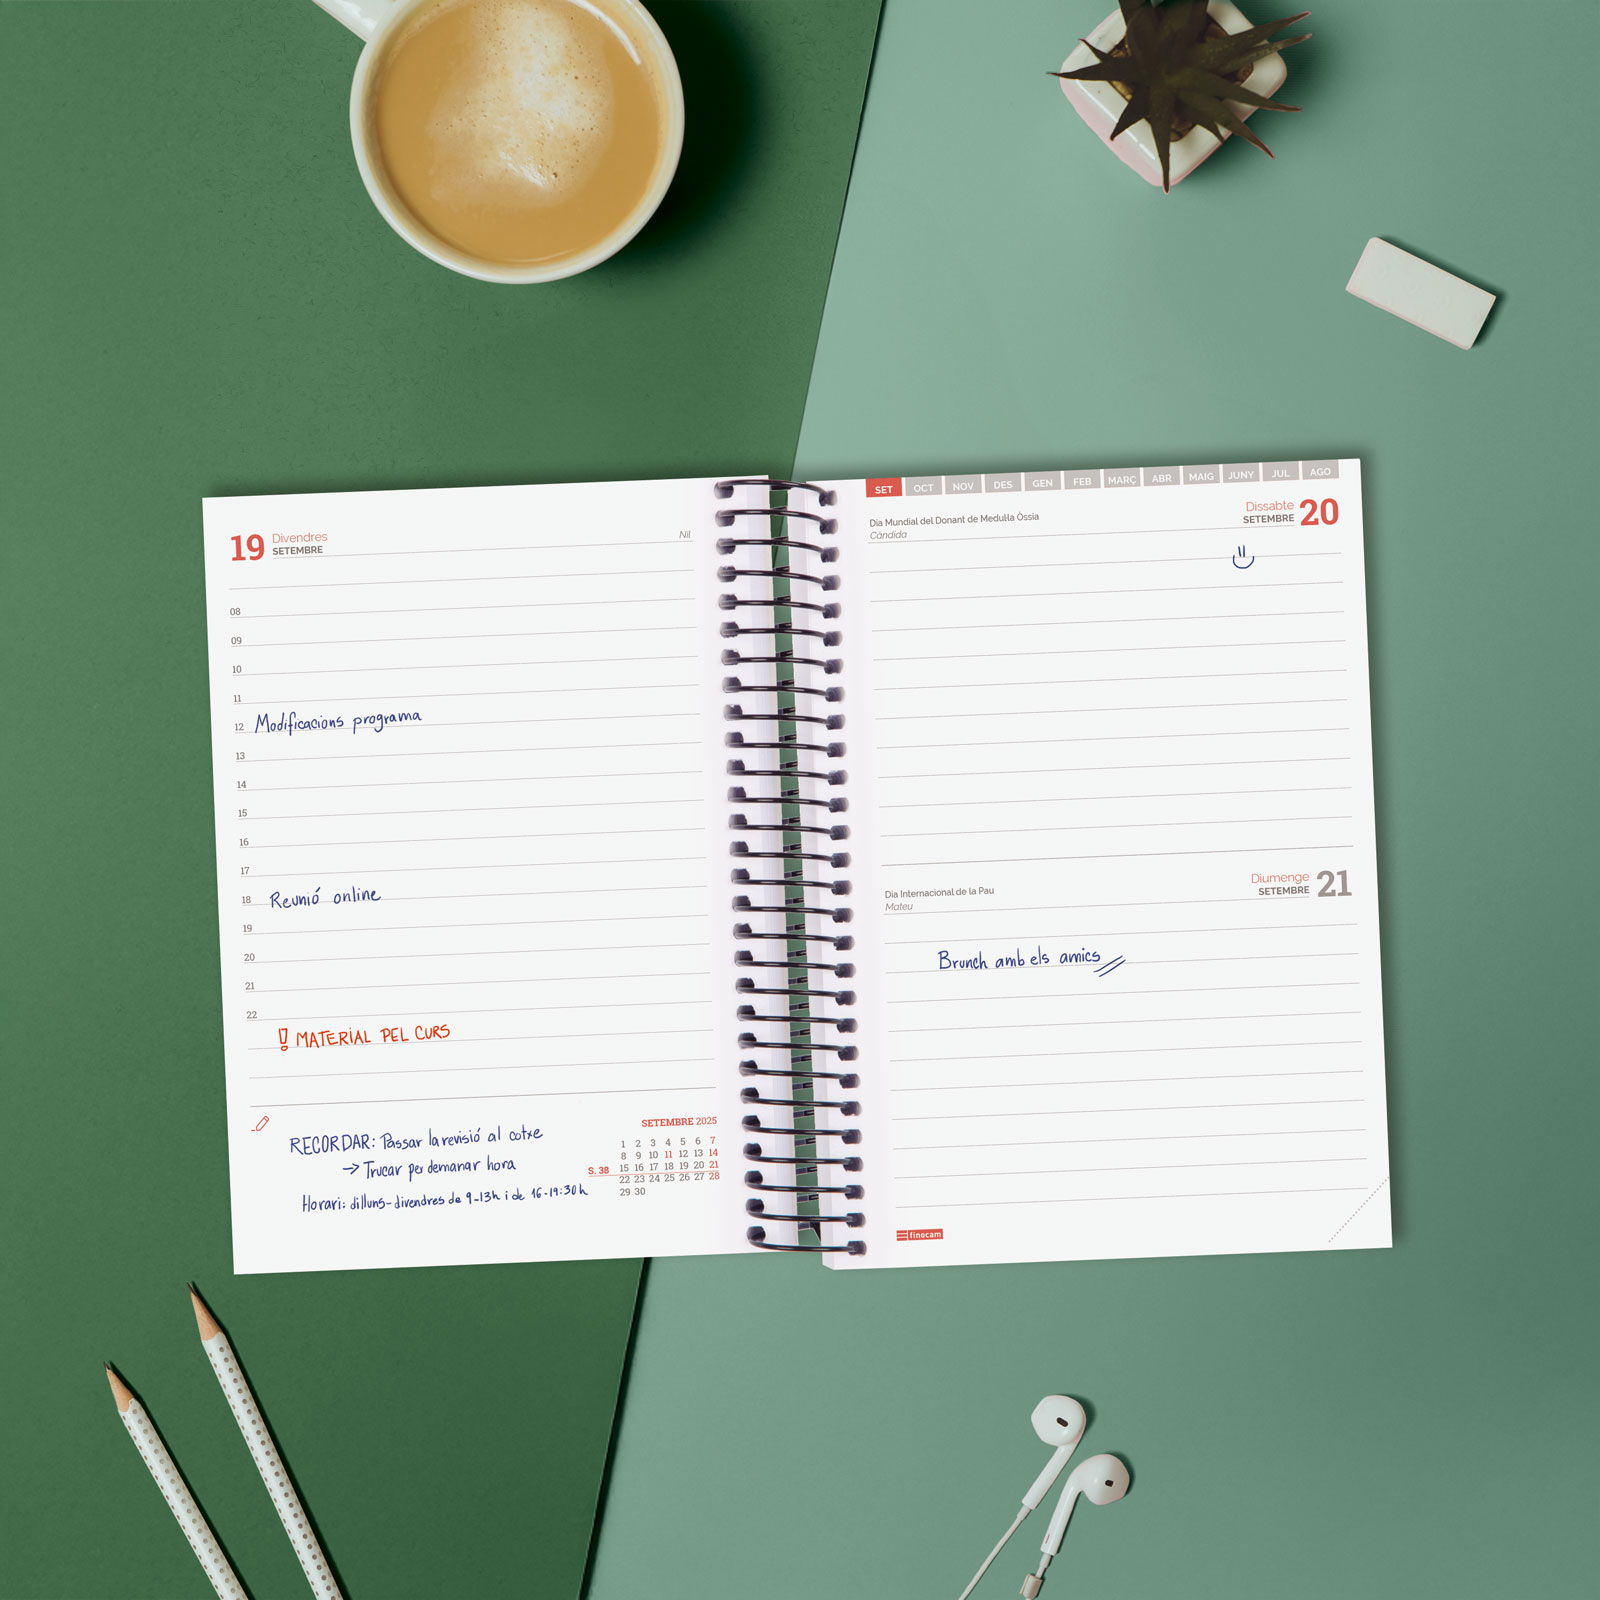 19 Divendres
SETEMBRE
Nil
08
09
10
11
12 Modificacions programa
13
14
15
16
17
18 Reunió online
19
20
21
22
! MATERIAL PEL CURS
RECORDAR: Passar la revisió al cotxe
→ Trucar per demanar hora
Horari: dilluns-divendres de 9-13h i de 16-19:30h
SETEMBRE 2025
1 2 3 4 5 6 7
8 9 10 11 12 13 14
S. 38 15 16 17 18 19 20 21
22 23 24 25 26 27 28
29 30
SET OCT NOV DES GEN FEB MARÇ ABR MAIG JUNY JUL AGO
Dia Mundial del Donant de Medul·la Òssia
Càndida
Dissabte
SETEMBRE 20
Dia Internacional de la Pau
Mateu
Diumenge
SETEMBRE 21
Brunch amb els amics
finocam